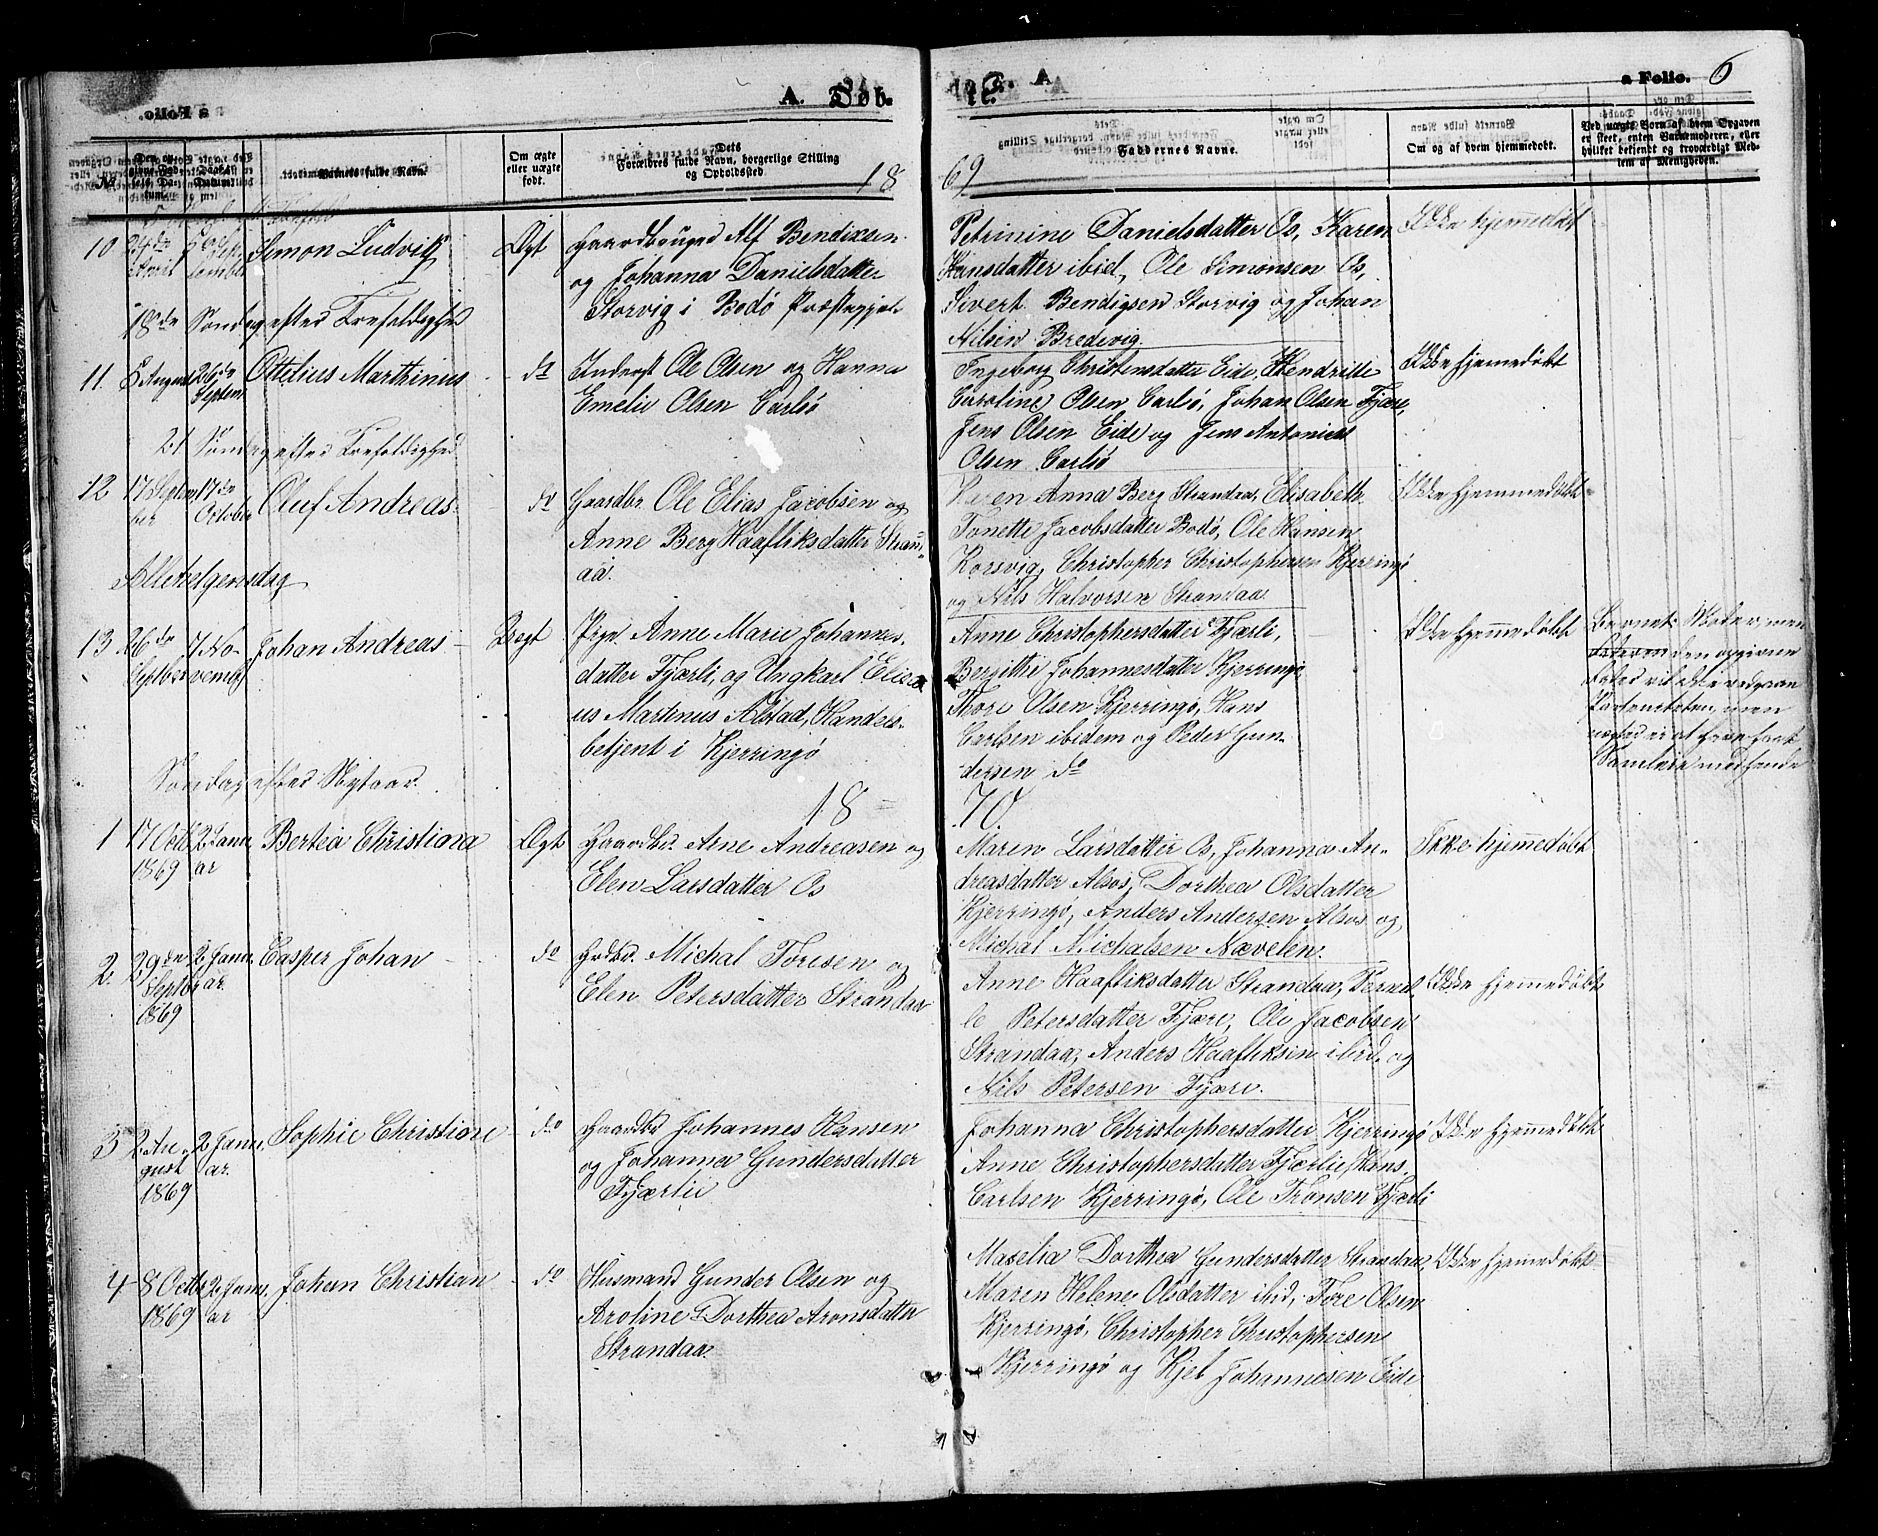 A. Døb-
te.
a Folio. 6
No.
Barnets fulde Navn.
Om ægte
eller uægte
født.
Dets
Forældres fulde Navn, borgerlige Stilling
og Opholdssted.
18
69
Faddernes Navne.
Om og af hvem hjemmedøbt.
Ved uægte Børn af hvem Opgaven
er skeet, enten Barnemoderen, eller
hvilket bekjendt og troværdigt Med-
lem af Menigheden.
10
24de
April
Simon Ludvig
Ægt
Gaardbruger Alf Bendixsen
og Johanna Danielsdatter
Storvig i Bodø Præstegjeld
Petrinine Danielsdatter Os, Karen
Hansdatter ibid, Ole Simonsen Os,
Sivert Bendigsen Storvig og Johan
Nilsen Bredevig.
Ikke hjemmedøbt
18de Søndag efter Trefoldighed
11.
8 August
26de
Septem
Ottelius Marthinus
do
Inderst Ole Olsen og Hanna
Emelie Olsen Carlsø
Ingeborg Christensdatter Eide, Hendritte
Caroline Olsen Carlsø, Johan Olsen Fjære,
Jens Olsen Eide og Jens Antonius
Olsen Carlsø
Ikke hjemmedøbt
21 Søndag efter Trefoldighed
12
17 Septem
ber
17de
October
Oluf Andreas
do
Gaardbr. Ole Elias Jacobsen og
Anne Berg Haafliksdatter Stran-
aa.
Karen Anna Berg Strandaa, Elisabeth
Tonette Jacobsdatter Bodø, Ole Hansen
Korsvig, Christopher Christophersen Kjerringø
og Nils Halvorsen Strandaa
Ikke hjemmedøbt
Allehelgensdag
13
26de
Septber
7 No-
vember
Johan Andreas
Uægt
Pige Anne Marie Johannes-
datter Fjærli, og Ungkarl Elise-
us Martinus Alstad, Handels-
betjent i Kjerringø
Anne Christophersdatter Fjærli,
Bergithe Johannesdatter Kjerringø
Thore Olsen Kjerringø, Hans
Carlsen ibidem og Peder Gun-
dersen do
Ikke hjemmedøbt
Barnets Moder, men
den opgivne
Fader vil ikke vedgaa
Paterniteten, men
nægter ei at have havt
Samleie med hende
Søndag efter Nytaar.
18
70.
1
17 Octb
1869
2 Janu
ar
Bertea Christiana
Ægt
Gaardbr. Arne Andreasen og
Elen Larsdatter Os
Maren Larsdatter Os, Johanna An-
dreasdatter Alsos, Dorthea Olsdatter
Kjerringø, Anders Andersen Alsos og
Michal Michalsen Nævelen.
Ikke hjemmedøbt
2.
29de
Septbr
1869
2 Janu
ar.
Casper Johan
do
Grdbr. Michal Toresen og
Elen Petersdatter Strandaa
Anne Haafliksdatter Strandaa, Pernel
le Petersdatter Fjære, Ole Jacobsen
Strandaa, Anders Haafliksen ibid. og
Nils Petersen Fjære.
Ikke hjemmedøbt
3
2 Au-
gust
1869
2 Janu
ar.
Sophie Christine
do
Gaardbr Johannes Hansen
og Johanna Gundersdatter
Fjærlie
Johanna Christophersdatter Kjerringø
Anne Christophersdatter Fjærlie, Hans
Carlsen Kjerringø, Ole Tronsen Fjærli
Ikke hjemmedøbt
4
8 Octbr
1869
2 Janu
ar
Johan Christian
do
Husmand Gunder Olsen og
Aroline Dorthea Aronsdatter
Strandaa
Maselia Dorthea Gundersdatter Strandaa,
Maren Helene Olsdatter ibid, Tore Olsen
Kjerringø, Christopher Christophersen
Kjerringø og Kjel Johannesen Eide
Ikke hjemmedøbt